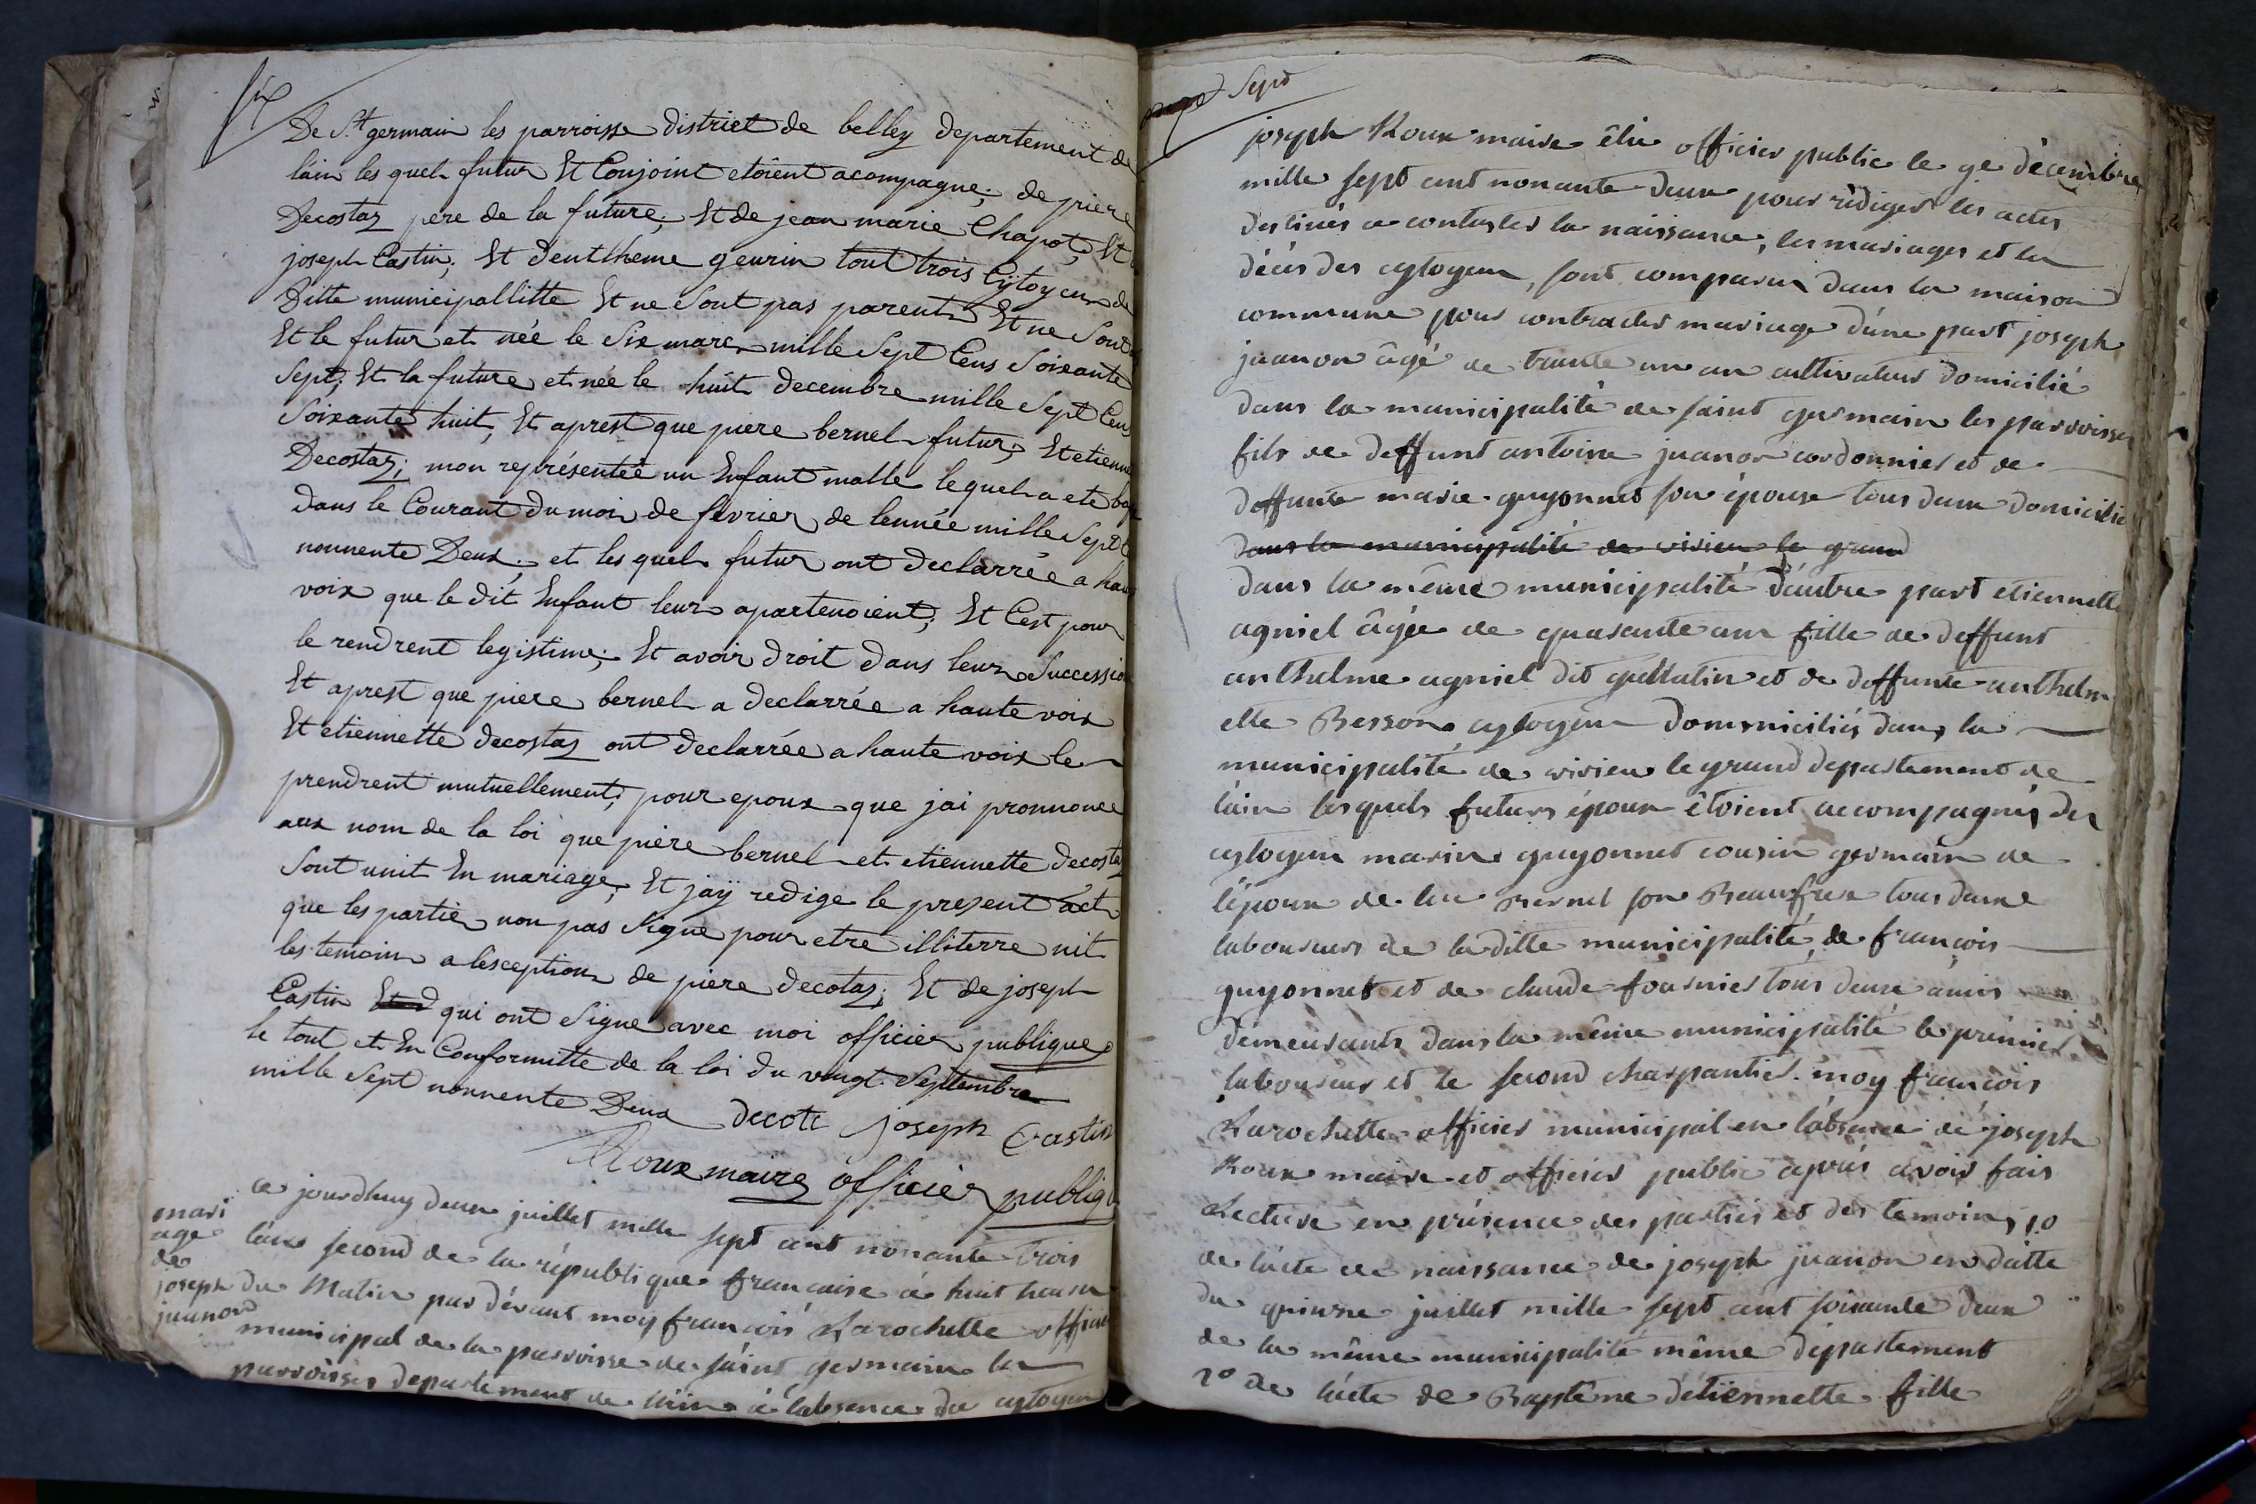 six
De St germain les parroisse district de belley departement de
lain les quels futur Et Conjoint etoient acompagne; de piere
Decostaz pere de la future; Et de jean marie Chapot; Et
joseph Castin; Et dentlheme geurin tout trois Cytoyens de
Ditte municipallitte Et ne Sont pas parents Et ne Sont
Et le futur et née le Six mars mille Sept Cens Soixante
Sept; Et la future et née le huit decembre mille Sept Cens
Soixante huit, Et aprest que piere bernel futur; Et etienne
Decostaz; mon représentée un Enfant malle lequel a ete
dans le Courant du moi de fevrier de lennée mille Sept
nonnente Deux; et les quels futur ont declarrée a haute
voix que le dit Enfant leur apartenoient; Et Cest pour
le rendrent legistime; Et avoir droit dans leur Succession
Et aprest que piere bernel a declarrée a haute voix
Et etiennette decostaz ont declarrée a haute voix le
prendrent mutuellement; pour epoux que jai pronnoncé
aux nom de la loi que piere bernel et etiennette decostaz
Sont unit En mariage; Et jaÿ redige le present act
que les partie non pas Signe pour etre illiterre nit
les temoins a lesception de piere decotaz; Et de joseph
Castin Et qui ont Signe avec moi officier publique
le tout et En Conformitte de la loi du vingt Septtembre
mille Sept nonnente Deux decote joseph Castin
Roux maire officier publiq
ce jourdhuy deux juillet mille sept cent nonante trois
mari
age
de
joseph
juanon
l'an second de la république francaise à huit heures
du Matin par dévant moy francois Larochette officier
municipal de la parroisse de saint germain les
parroisses departement de l'ain à l'absence du cytoyen
page Sept
joseph Roux maire élû officier public le 9e décembre
mille sept cent nonante deux pour rédiger les actes
destinés a contester la naissance, les mariages et les
décés des cytoyens, sont comparus dans la maison
commune pour contracter mariage d'une part joseph
juanon âgé de trente un an cultivateur domicilié
dans la municipalité de saint germain les parroisses
fils de deffunt antoine juanon cordonnier et de
deffunte marie guyonnet son épouse tous deux domiciliés
dans la municipalité de virieu le grand
dans la même municipalité d'autre part etiennette
agniel âgée de quarante ans fille de deffunt
anthelme agniel dit guellatin et de deffunte anthelm
ette Besson, cytoyens dommiciliés dans la
municipalité de virieu le grand departement de
l'ain lesquels futurs époux êtoient accompagnés des
cytoyens marin guyonnet cousin germain de
l'époux de luc Bernel son Beaufrere tous deux
laboureurs de laditte municipalité, de francois
guyonnet et de claude fournier tous deux amis
demeurants dans la même municipalité le prémier
laboureur et le second charpantier. moy francois
Larochette officier municipal en l'absence de joseph
Roux maire et officier public aprés avoir fait
Lecture en présence des parties et des temoins, 1o
de l'acte de naissance de joseph juanon en datte
du quinze juillet mille sept cent soixante deux
de la même municipalité même département
2o de l'acte de Baptême d'étiennette fille